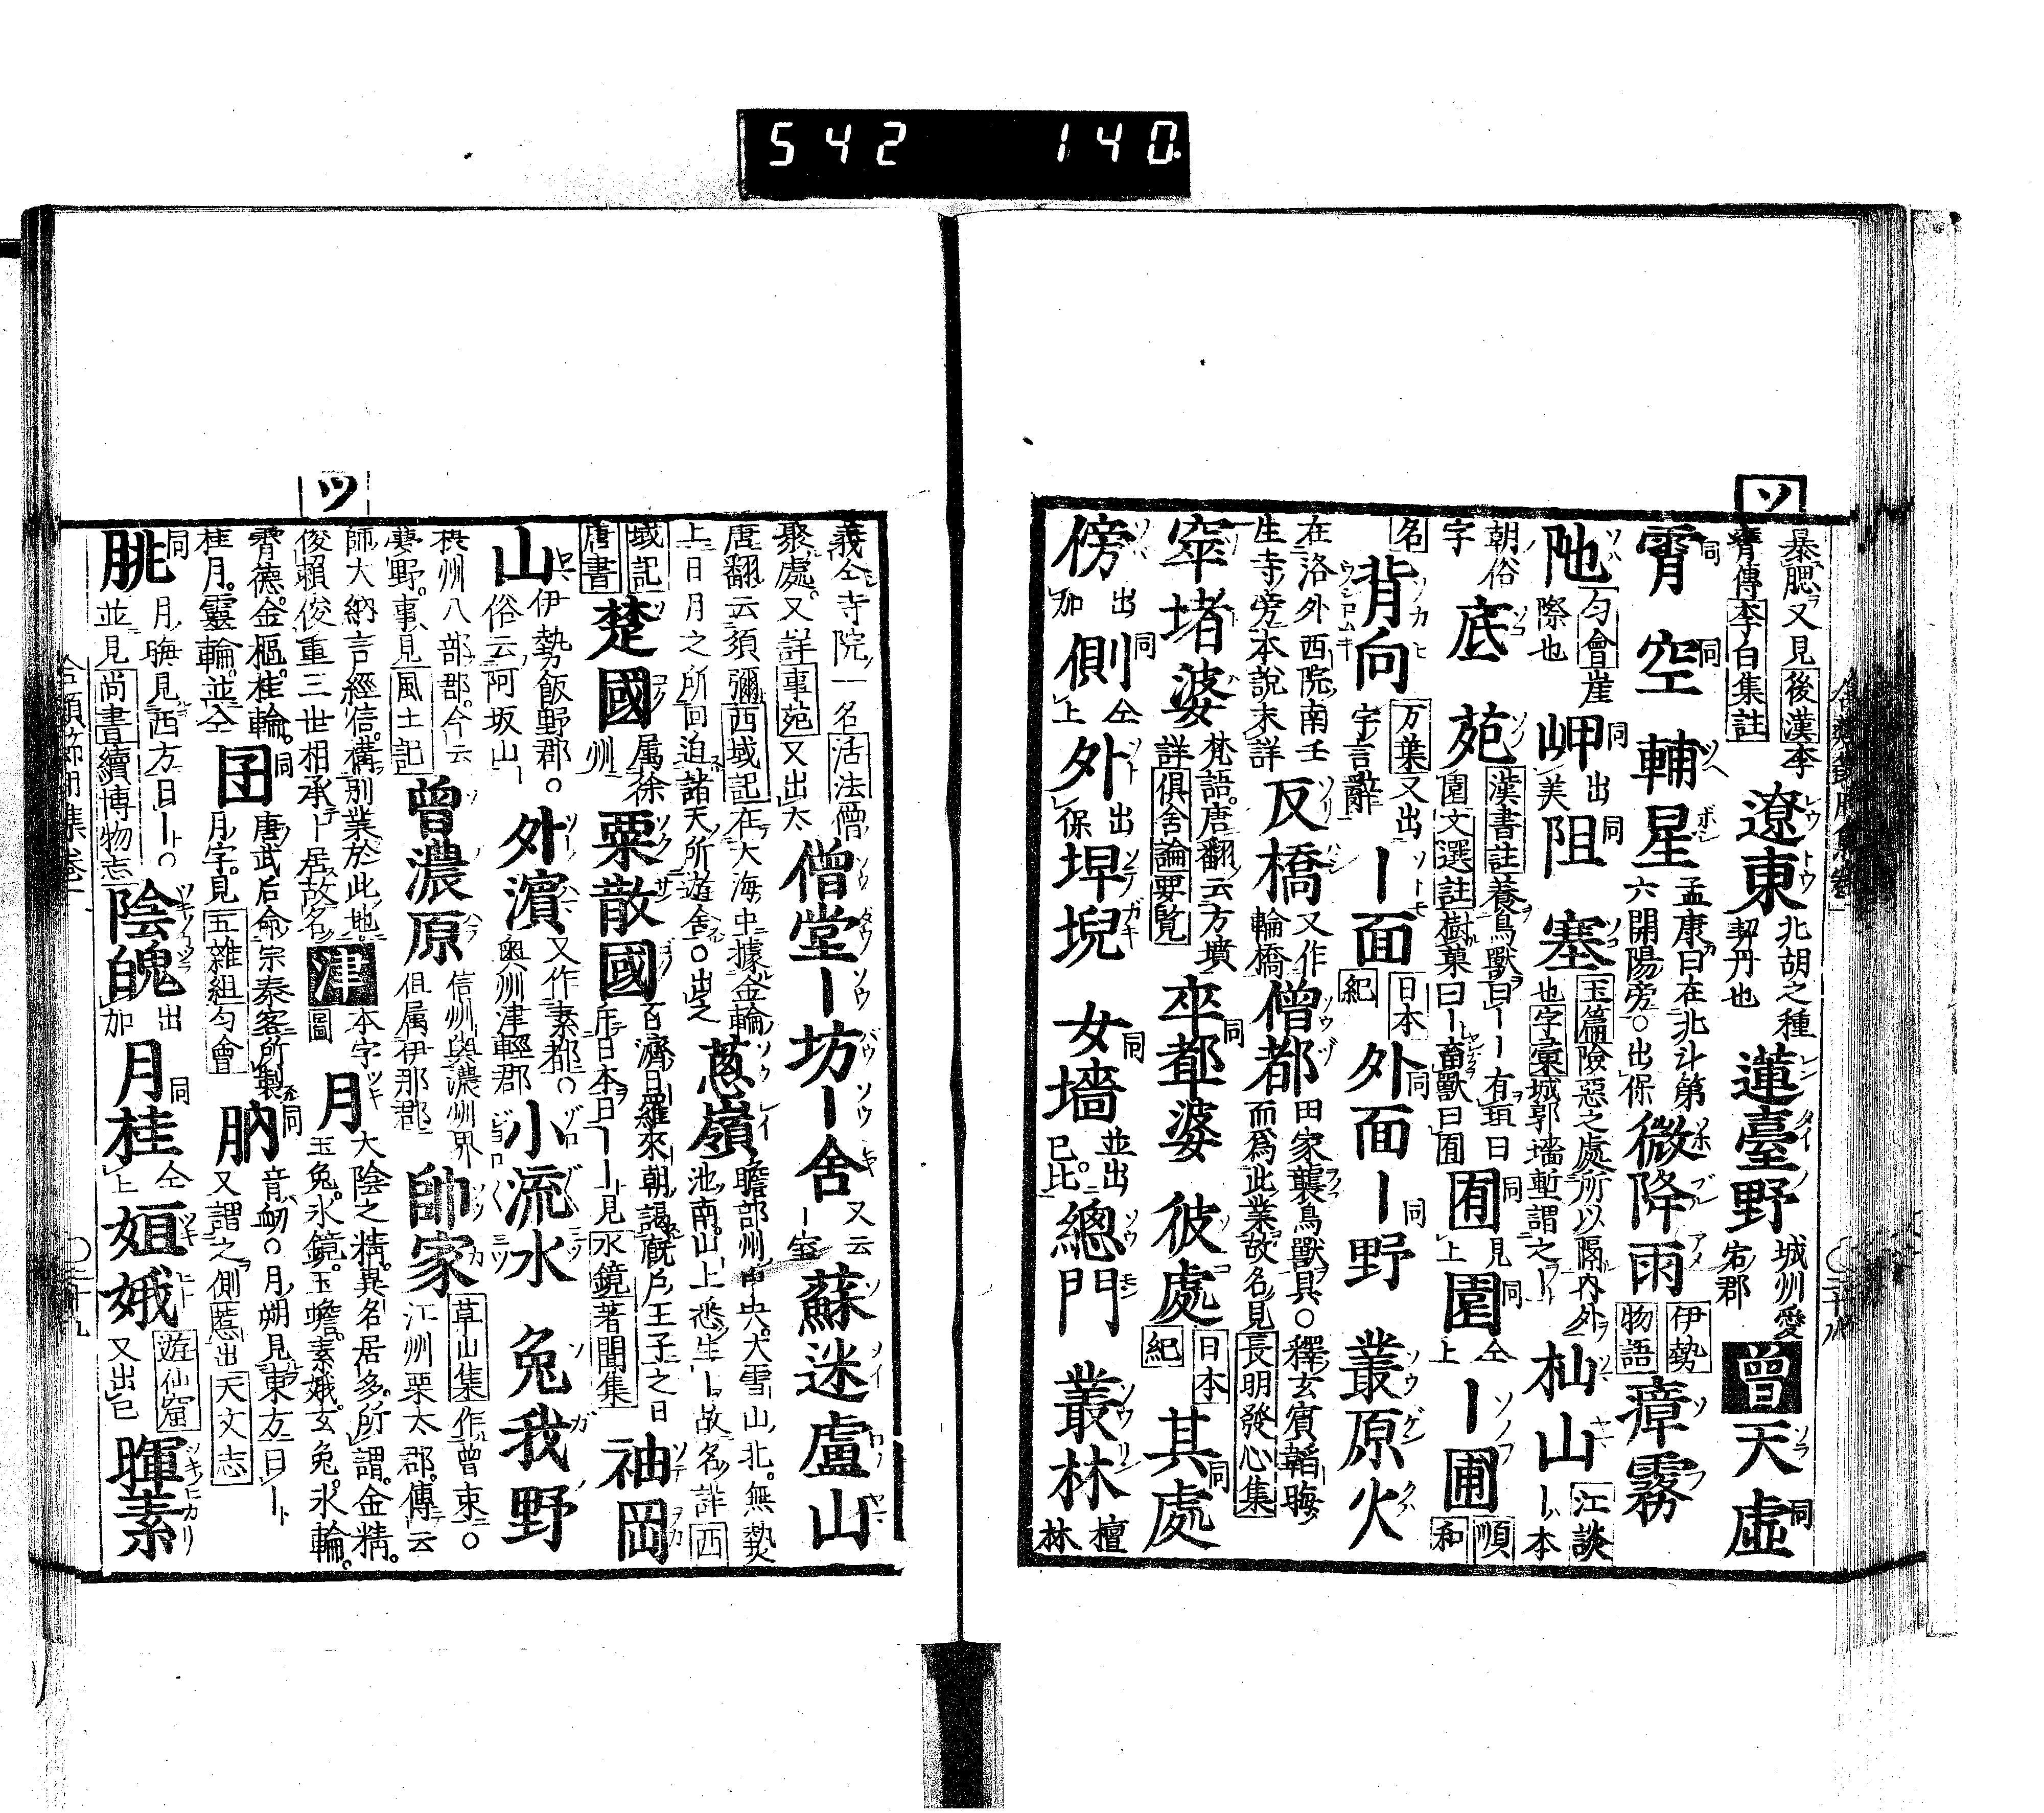 542 140.
ソ
暴腮又見後漢李
膺傳李白集註
遼東 北胡之種契丹也 蓮臺野 城州愛宕郡 曾 天 虛 同
霄 同 空 同 輔星 孟康曰在北斗第六開陽旁○出保 微降雨 伊勢物語 瘴霧
阤 匀會崖際也 岬 同 出美 阻 同 塞 玉篇險惡之處所以隔内外也字彙城郭墻塹謂之ー 杣山 江談ー本
朝俗字 底 苑 漢書註養鳥獸曰ーー有垣曰園文選註樹菓曰ー畜獸曰囿 囿 同 見上 園 同 仝上 ー圃 順和
名 背向 万葉又出言辭 ー面 日本紀 外面 同 ー野 同 叢原火
在洛外西院南壬生寺旁本說末詳 反橋 又作輪橋 僧都 田家襲鳥獸具○釋玄賓韜晦而爲此業故名見長明發心集
窣堵婆 梵語唐翻云方墳詳俱舍論要覧 卒都婆 同 彼處 日本紀 其處 同
傍 出加 側 同 仝上 外 出保 埤堄 女墻 同 並出巳比 總門 叢林 檀林
ツ
義仝寺院一名活法僧
聚處又詳事苑又出太 僧堂 ー坊 ー舍 又云ー室 蘇迷盧山
唐翻云須彌西域記在大海中據金輪上日月之所回迫諸天所遊舍○出之 葱嶺 瞻部州中央大雪山北無熱池南山上悉生ー故名詳西
域記唐書 楚國 属徐州 粟散國 百濟日羅來朝謁厩戸王子之日 日本曰ーー見水鏡著聞集 袖岡
山 伊勢飯野郡○俗云阿坂山 外濱 又作素都○奥州津輕郡 小流水 兔我野
棋州八部郡今云夢野事見風土記 曾濃原 信州與濃州界但属伊那郡 帥家 草山集作曾束○江州栗太郡傳云
師大納言經信構別業於此地俊賴俊重三世相承ー居故名 津 本字圖 月 大陰之精異名居多所謂金精玉兔氷鏡玉蟾素娥玄兔氷輪
霄德金樞桂輪桂月靈輪並仝 囝 同 唐武后命宗秦客所製月字見五雜組匀會 朒 同 音衂○月朔見東方曰ー又謂之側慝出天文志
朓 同 月晦見西方曰ー○並見尚書續博物志 陰魄 出加 月桂 同 仝上 姮娥 遊仙窟又出巳 暉素